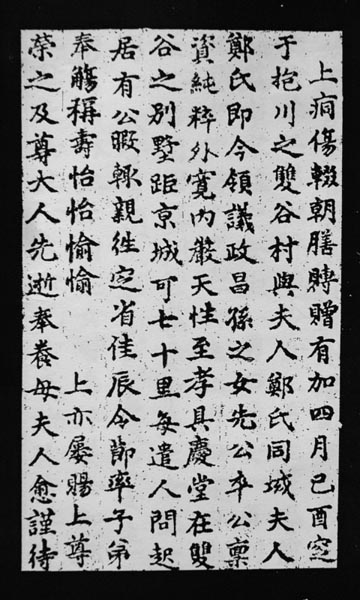 上痌傷輟朝膳賻贈有加四月己酉窆
于抱川之雙谷村與夫人鄭氏同域夫人
鄭氏即今領議政昌孫之女先公卒公稟
資純粹外寬內嚴天性至孝具慶堂在雙
谷之別墅距京城可七十里每遣人問起
居有公暇輒親徃定省佳辰令節率子弟
奉觴稱壽怡怡愉愉　上亦屢賜上尊
榮之及尊大人先逝奉養母夫人愈謹待